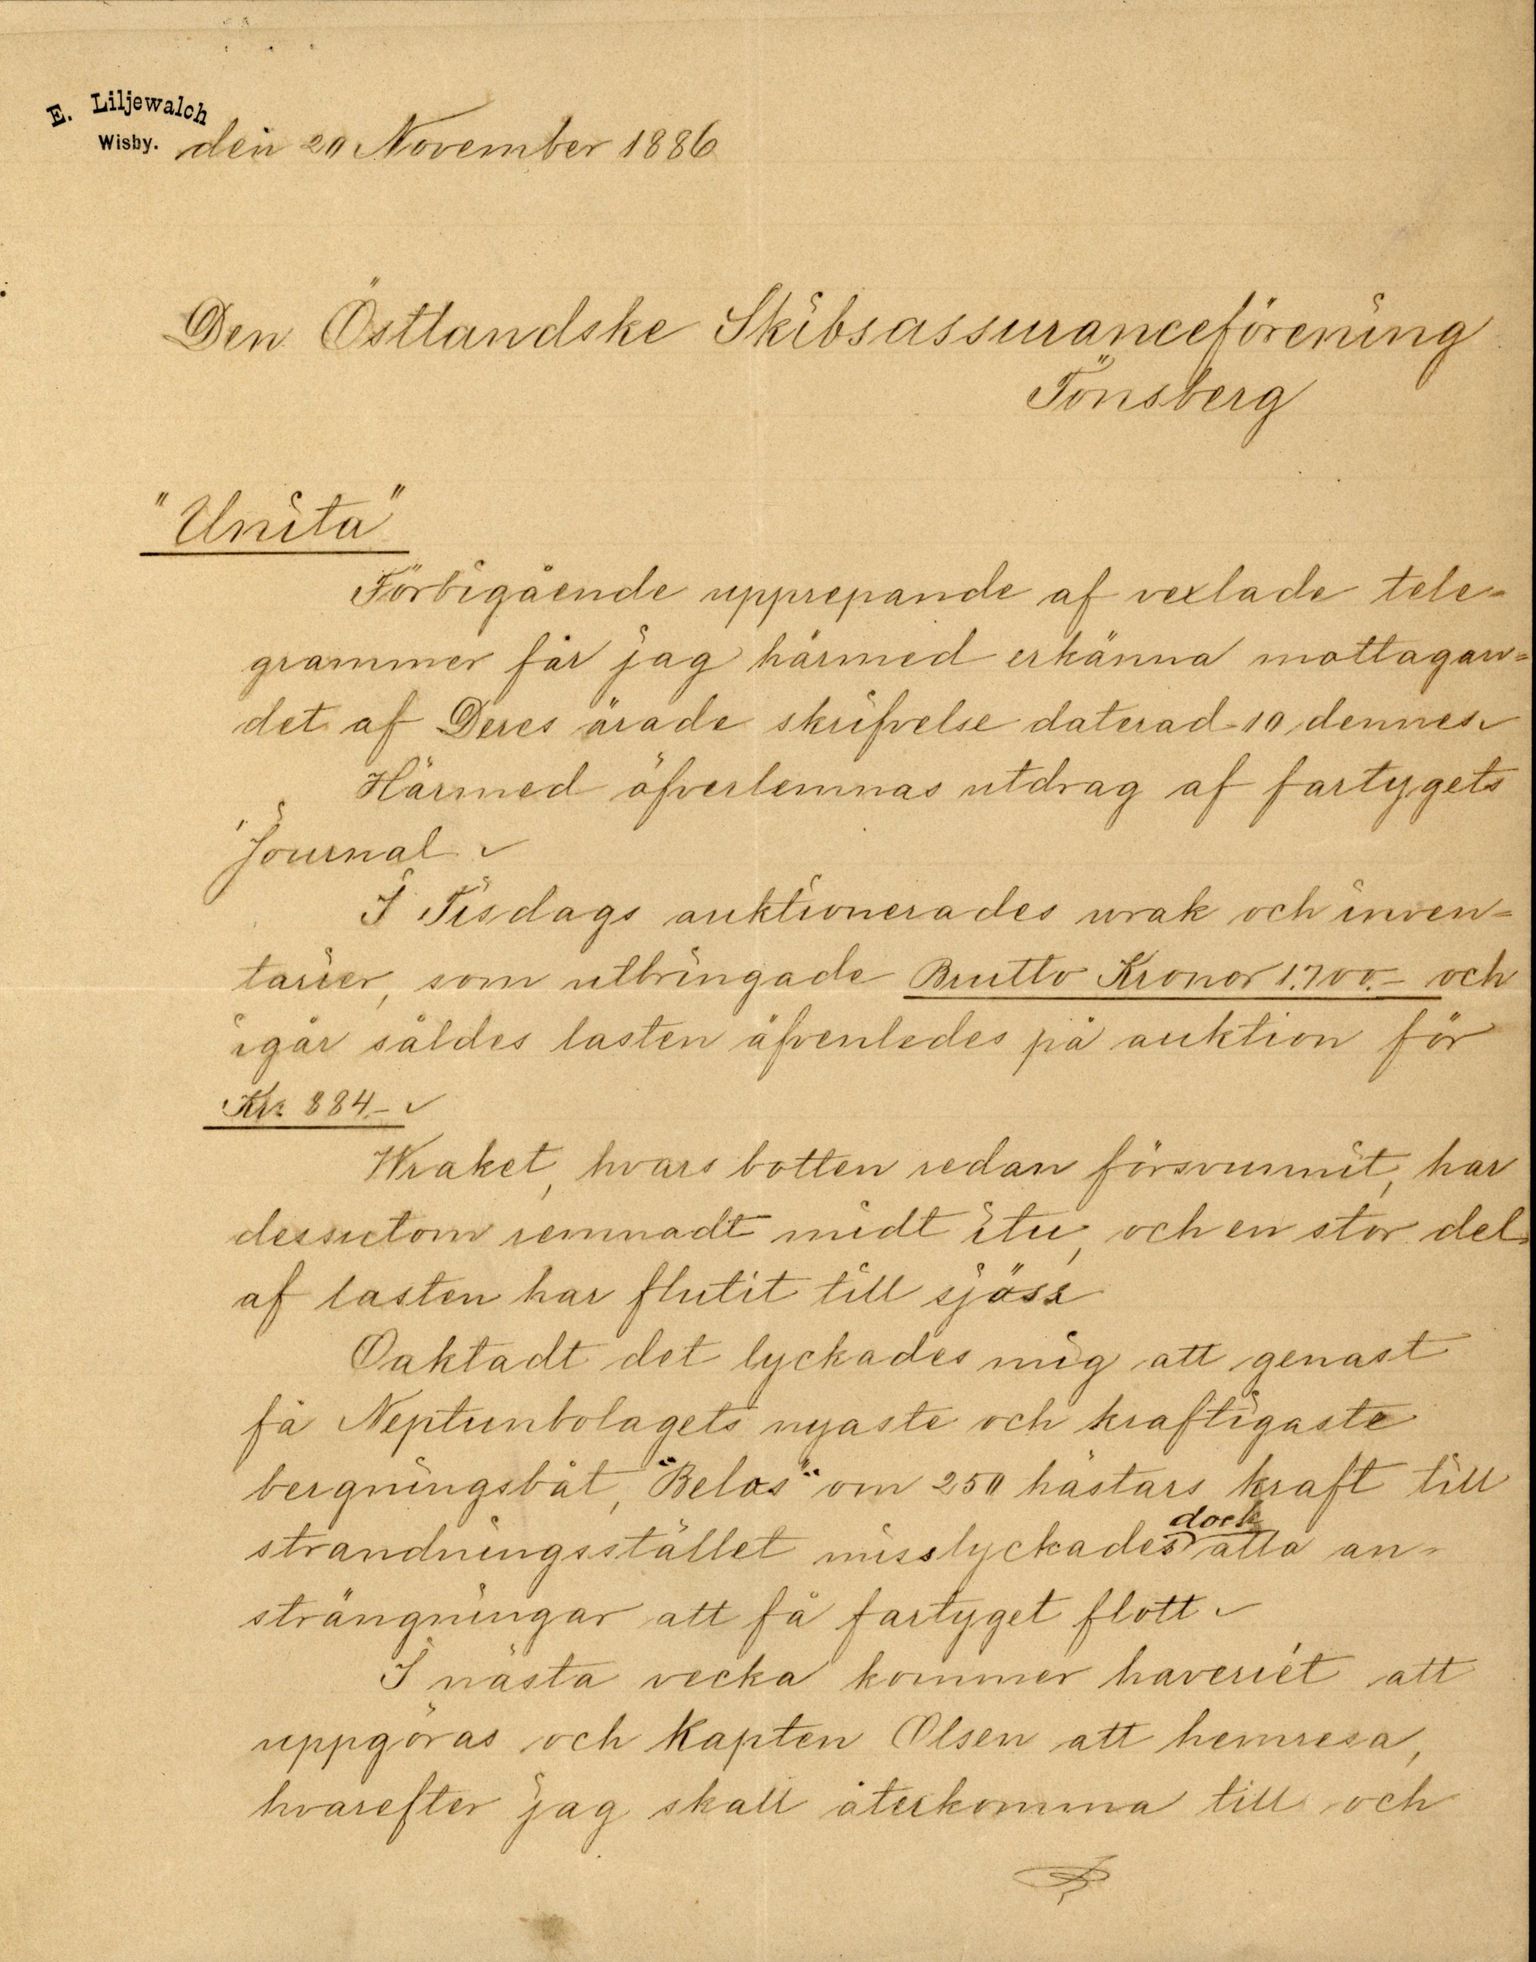 E. Liljewalch
Wisby. den 20 November 1886
Den Östlandske Skibsassuranceförening
Tönsberg
"Unita"
Förbigående upprepande af vexlade tele=
grammer får jag härmed erkänna mottagan=
det af Deres ärade skrifvelse daterad 10 dennes
Härmed öfverlemnas utdrag af fartygets
Journal
I Tisdags auktionerades wrak och inven=
tarier, som utbringade Brutto Kronor 1.700.- och
igår såldes lasten äfvenledes på auktion för
Kr 884.-
Wraket, hvars botten redan försvunnit, har
dessutom remnadt midt itu, och en stor del
af lasten har flutit till sjöss
Oaktadt det lyckades mig att genast
få Neptunbolagets nyaste och kraftigaste
bergningsbåt, "Belos" om 250 hästars kraft till
strandningsstället misslyckades dock alla an=
strängningar att få fartyget flott
I nästa vecka kommer haveriet att
uppgöras och Kapten Olsen att hemresa,
hvarefter jag skall återkomma till och